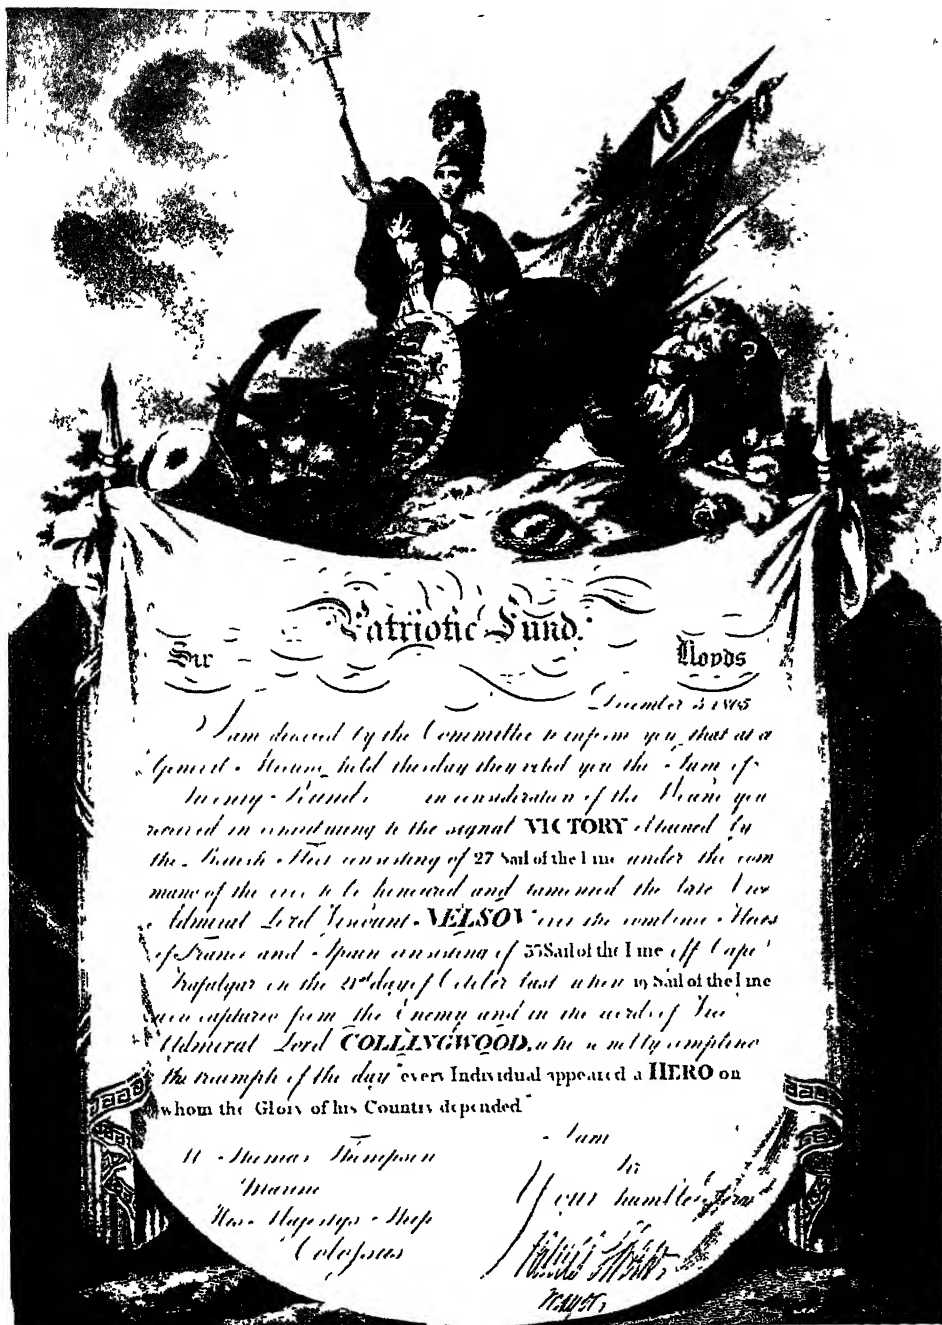 Patriotic Fund.
Sir Lloyds
December 3 1805
I am directed by the Committee to inform you that at a
General Meeting held this day they voted you the Sum of
Twenty Pounds in consideration of the Wound you
received in contributing to the signal VICTORY obtained by
the British Fleet consisting of 27 Sail of the Line under the com
mand of the ever to be honoured and lamented the late Vice
Admiral Lord Viscount NELSON over the combined Fleets
of France and Spain consisting of 33 Sail of the Line off Cape
Trafalgar on the 21st day of October last when 19 Sail of the Line
were captured from the Enemy and in the words of Vice
Admiral Lord COLLINGWOOD, who nobly completed
the triumph of the day "every Individual appeared a HERO on
whom the Glory of his Country depended"
I am
Mr Thomas Thompson Sir
Marine Your humble Serv
His Majestys Ship
Colossus